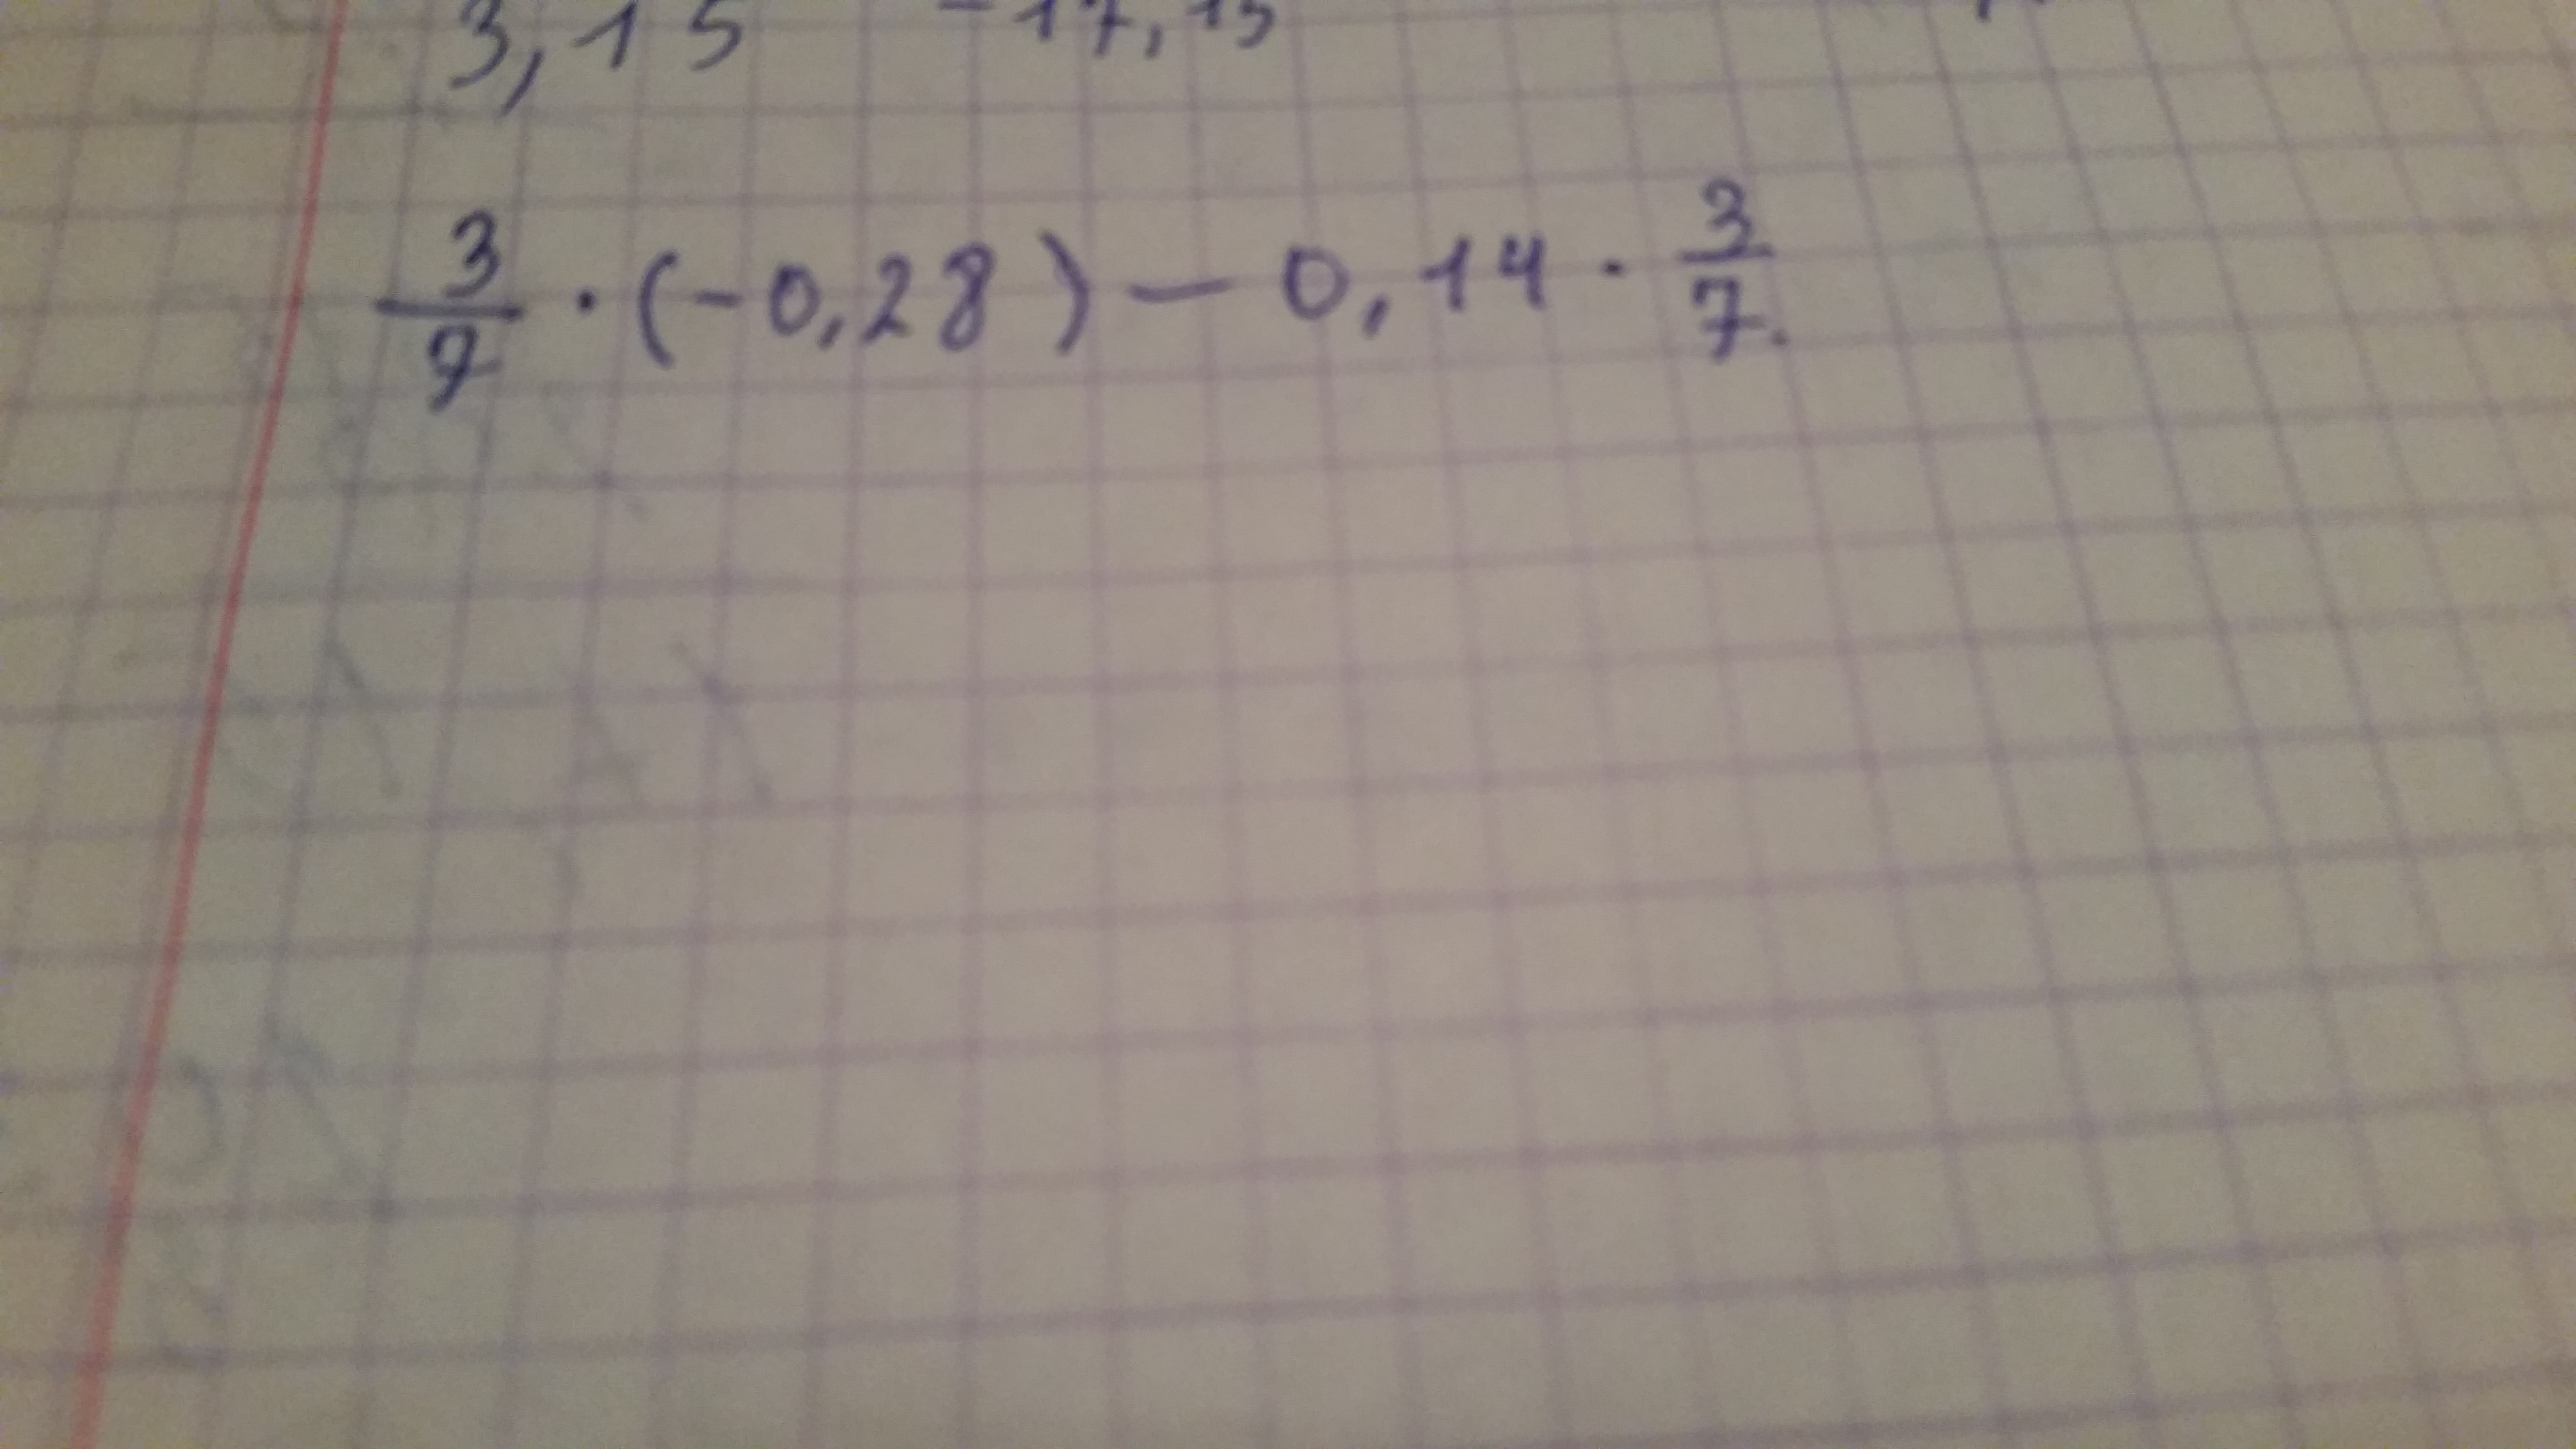 3,15 -17,15
3/7 · (-0,28) - 0,14 · 3/7.